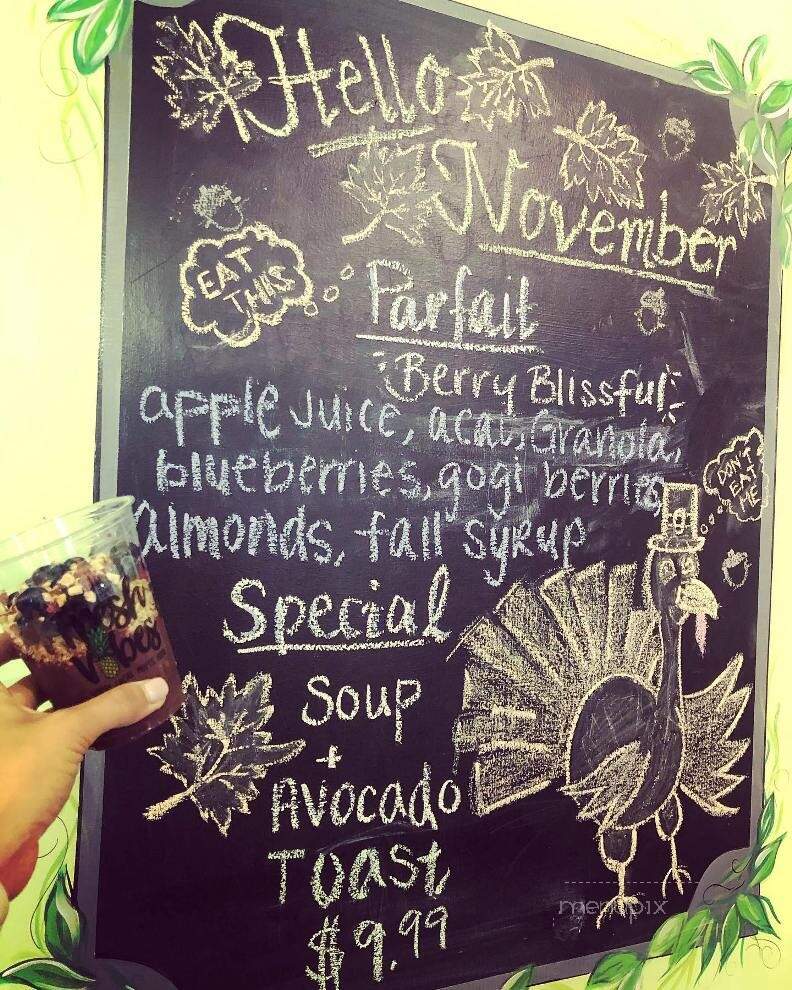 Hello
November
EAT
THIS
Parfait
Berry Blissful
apple juice, acai, Granola,
blueberries, gogi berries,
almonds, fall syrup
DON'T
EAT
ME
Special
Soup
+
Avocado
Toast
$9.99
Fresh
Vibes
menupix